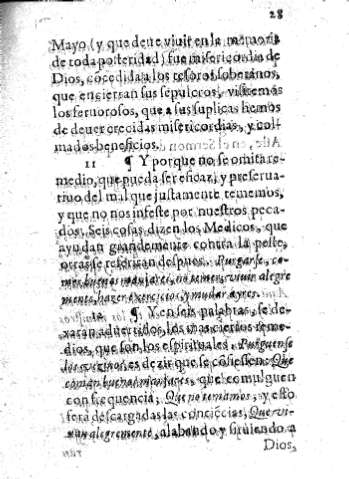 28
Mayo (y que deue viuir en la memoria
de toda posteridad) fue misericordia de
Dios, cõcedida a los tesoros soberanos,
que encierran sus sepulcros, visitemos
los feruorosos, que a sus suplicas hemos
de deuer crecidas misericordias, y col-
mados beneficios.
11 ¶ Y porque no se omita re-
medio, que pueda ser eficaz, y preserua-
tiuo del mal que justamente tememos,
y que no nos infeste por nuestros peca-
dos, Seis cosas dizen los Medicos, que
ayudan grandemente contra la peste,
otras se referiràn despues. Purgarse, co-
mer buenos manjares, no temer, viuir alegre
mente, hazer exercicio, y mudar ayres.
12 ¶ Y en seis palabras, se de-
xaràn aduertidos, los mas ciertos reme-
dios, que son los espirituales. Purguense
es dezir que se cõfiessen: Que
coman buenos manjares, que comulguen
con frequencia; Que no teman, y esto
serà descargadas las conciẽcias; Que vi-
uan alegremente, alabando y siruiendo a
Dios,